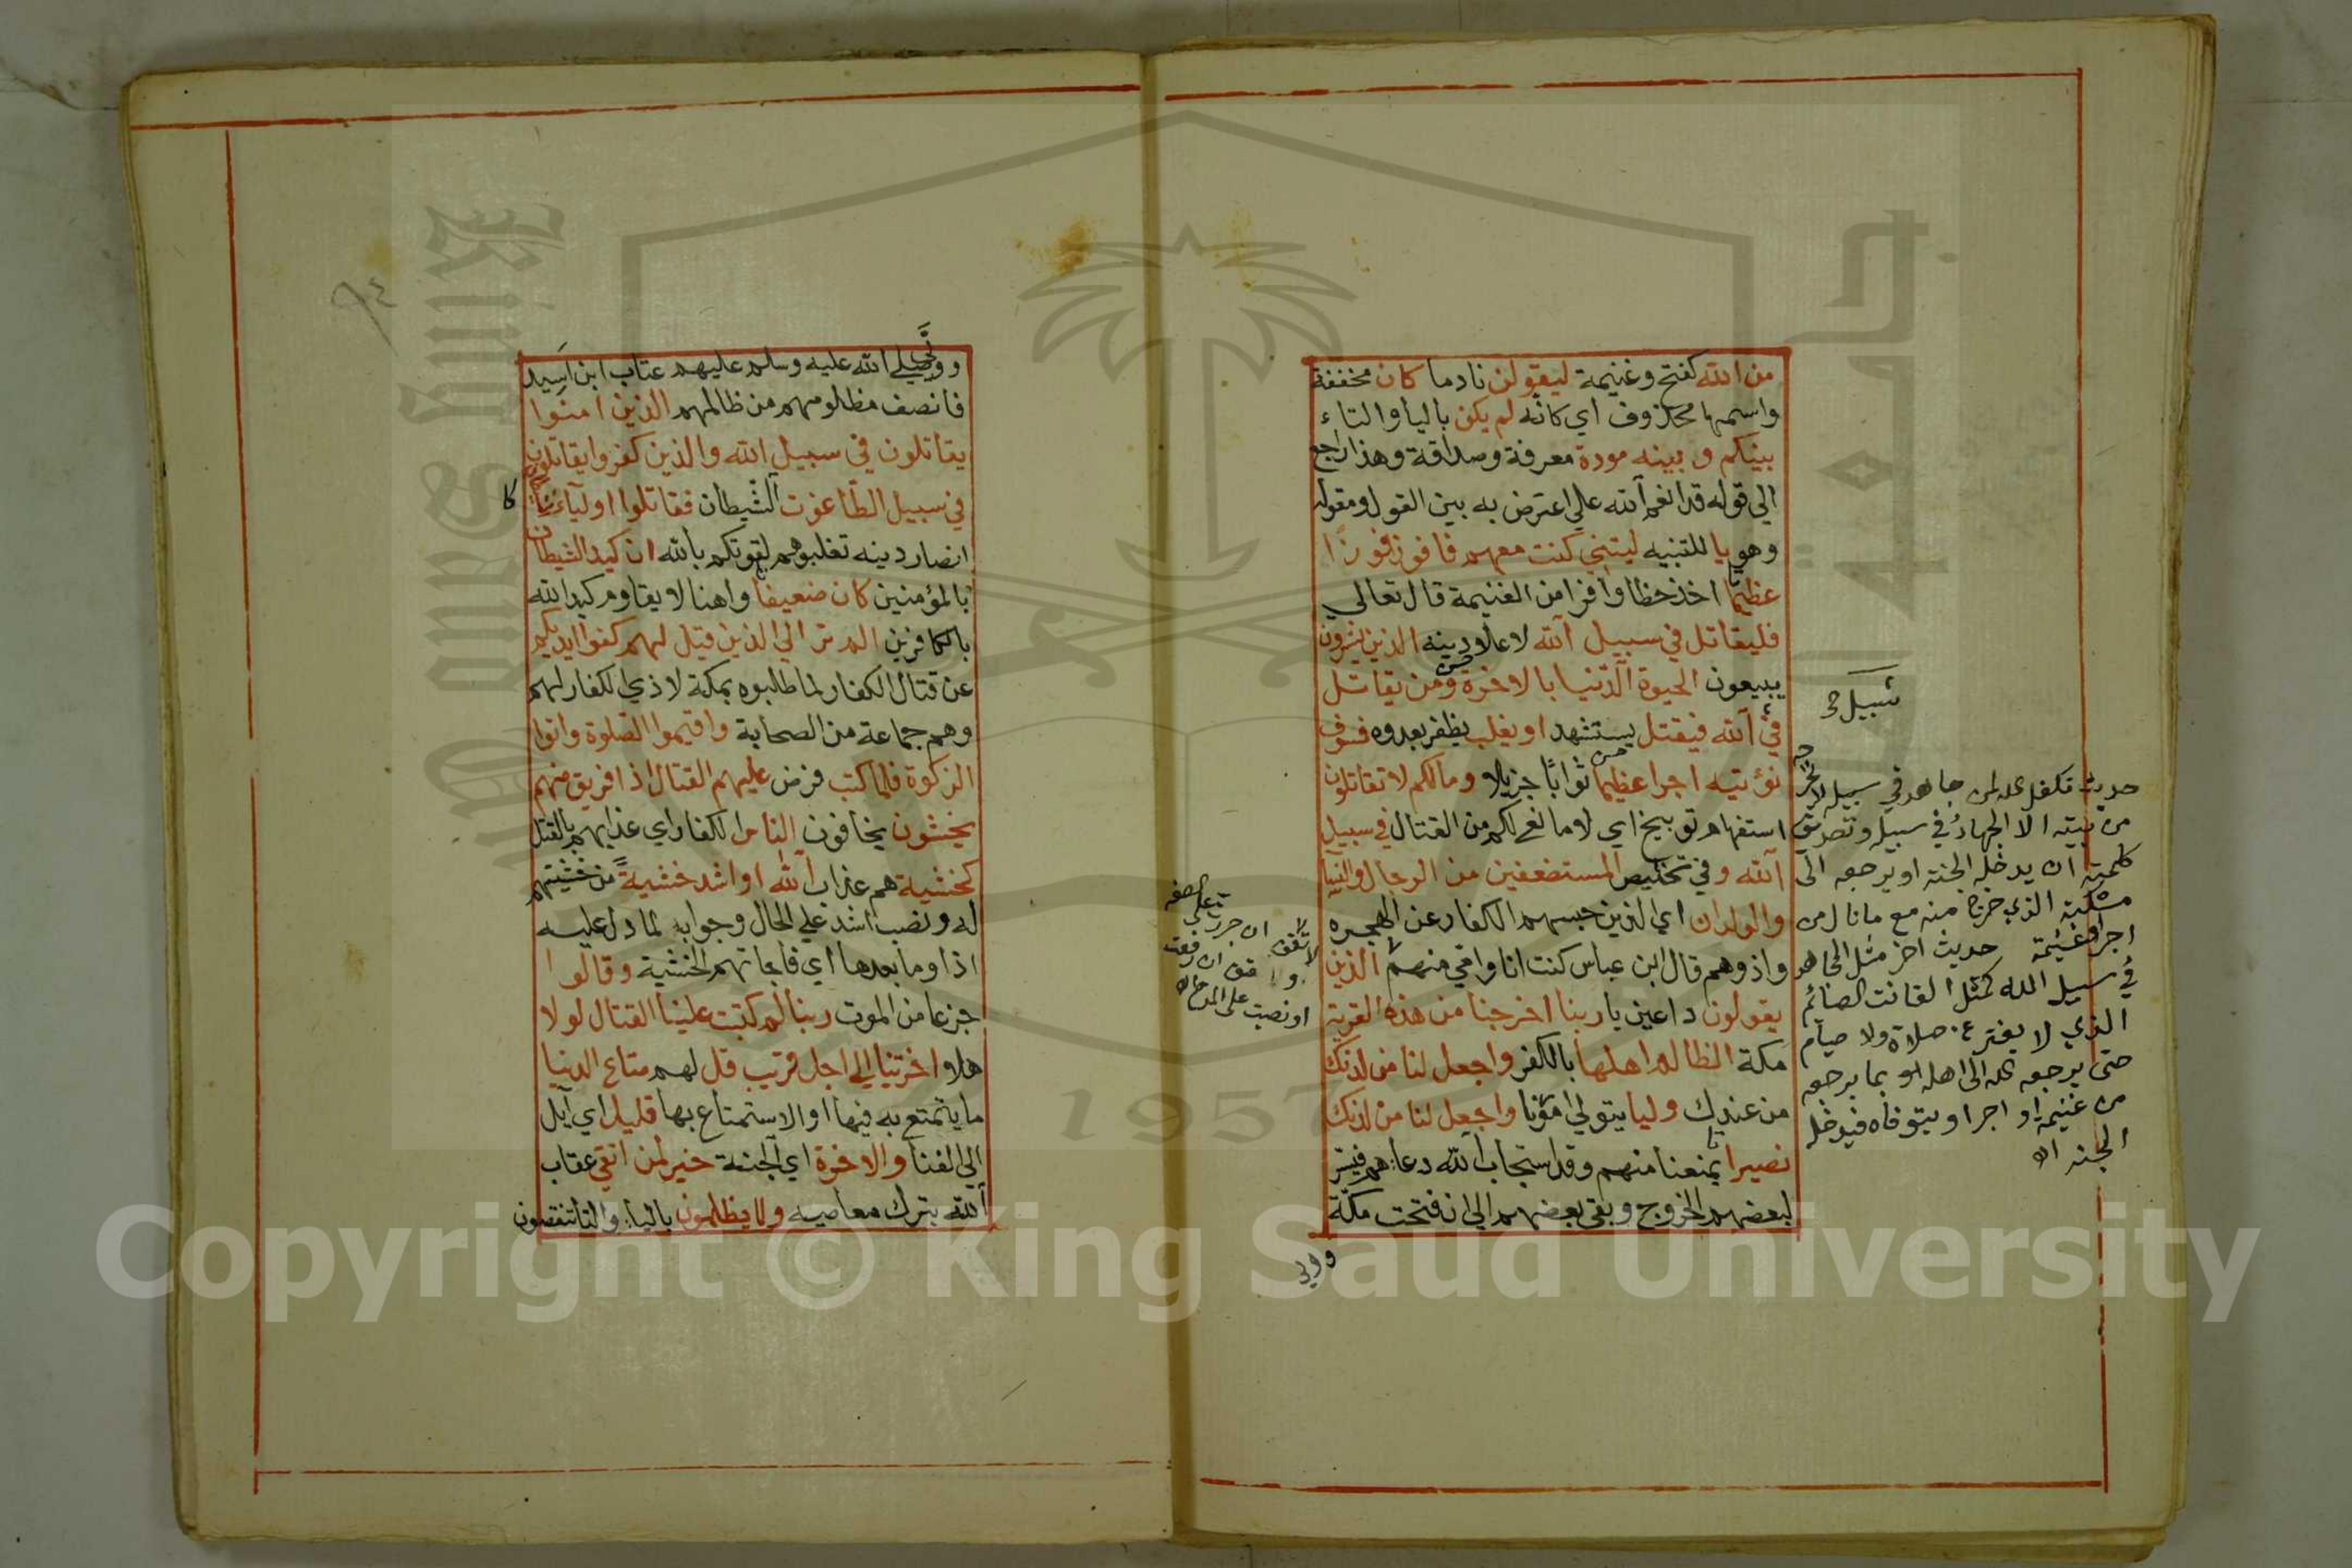 من الله كفتح وغنيمة ليقولن نادما كان مخففة
واسمها محذوف اي كانه لم يكن باليا والتاء
بينكم وبينه مودة معرفة وصداقة وهذا راجع
الي قوله قد انعم الله علي اعترض به بين القول ومقوله
وهو يا للتنبيه ليتني كنت معهم فافوز فوزا
عظيما اخذ حظا وافرا من الغنيمة قال تعالي
فليقاتل في سبيل الله لاعلاء دينه الذين يشرون
يبيعون الحيوة الدنيا بالاخرة ومن يقاتل
في الله فيقتل يستشهد او يغلب يظفر بعدوه فسوف
نؤتيه اجرا عظيما ثوابا جزيلا ومالكم لا تقاتلون
استفهام توبيخ اي لا مانع لكم من القتال في سبيل
الله وفي تخليص المستضعفين من الرجال والنسآء
والولدان اي الذين حبسهم الكفار عن الهجره
واذوهم قال ابن عباس كنت انا وامي منهم الذين
يقولون داعين يا ربنا اخرجنا من هذه القرية
مكة الظالم اهلها بالكفر واجعل لنا من لدنك
من عندك وليا يتولي امورنا واجعل لنا من لدنك
نصيرا يمنعنا منهم وقد استجاب الله دعاهم فيسر
لبعضهم الخروج وبقي بعضهم الي ان فتحت مكة
وولي
سبيل
حديث تكفل الله لمن جاهد في سبيله لا يخرجه
من بيته الا الجهاد في سبيله وتصديق
كلمته ان يدخله الجنة او يرجعه الى
مسكنه الذي خرج منه مع ما نال من
اجر او غنيمة حديث اخر مثل المجاهد
في سبيل الله كمثل القانت الصائم
الذي لا يفتر عن صلاة ولا صيام
حتى يرجعه الله الى اهله او بما يرجعه
من غنيمة او اجر او يتوفاه فيدخله
الجنة اه
لا تقف ان جررت على الصفه
ان رفعت
او نصبت على المدح اه
٩٤
وولي صلي الله عليه وسلم عليهم عتاب ابن اسيد
فانصف مظلومهم من ظالمهم الذين امنوا
يقاتلون في سبيل الله والذين كفروا يقاتلون
في سبيل الطاغوت الشيطان فقاتلوا اوليآء الشيطان
كا
انصار دينه تغلبوهم لقوتكم بالله ان كيد الشيطان
بالمؤمنين كان ضعيفا واهنا لا يقاوم كيد الله
بالكافرين الم تر الي الذين قيل لهم كفوا ايديكم
عن قتال الكفار لما طلبوه بمكة لاذي الكفار لهم
وهم جماعة من الصحابة واقيموا الصلوة واتوا
الزكوة فلما كتب فرض عليهم القتال اذا فريق منهم
يخشون يخافون الناس الكفار اي عذابهم بالقتل
كخشية هم عذاب الله او اشد خشية من خشيتهم
له ونصب اشد علي الحال وجواب لما دل عليه
اذا وما بعدها اي فاجاتهم الخشية وقالوا
جزعا من الموت ربنا لم كتبت علينا القتال لولا
هلا اخرتنا الي اجل قريب قل لهم متاع الدنيا
ما يتمتع به فيها او الاستمتاع بها قليل اي آيل
الي الفنا والاخرة اي الجنة خير لمن اتقي عقاب
الله بترك معاصيه ولا يظلمون باليا والتا تنقصون
Copyright © King Saud University
King Saud
1957